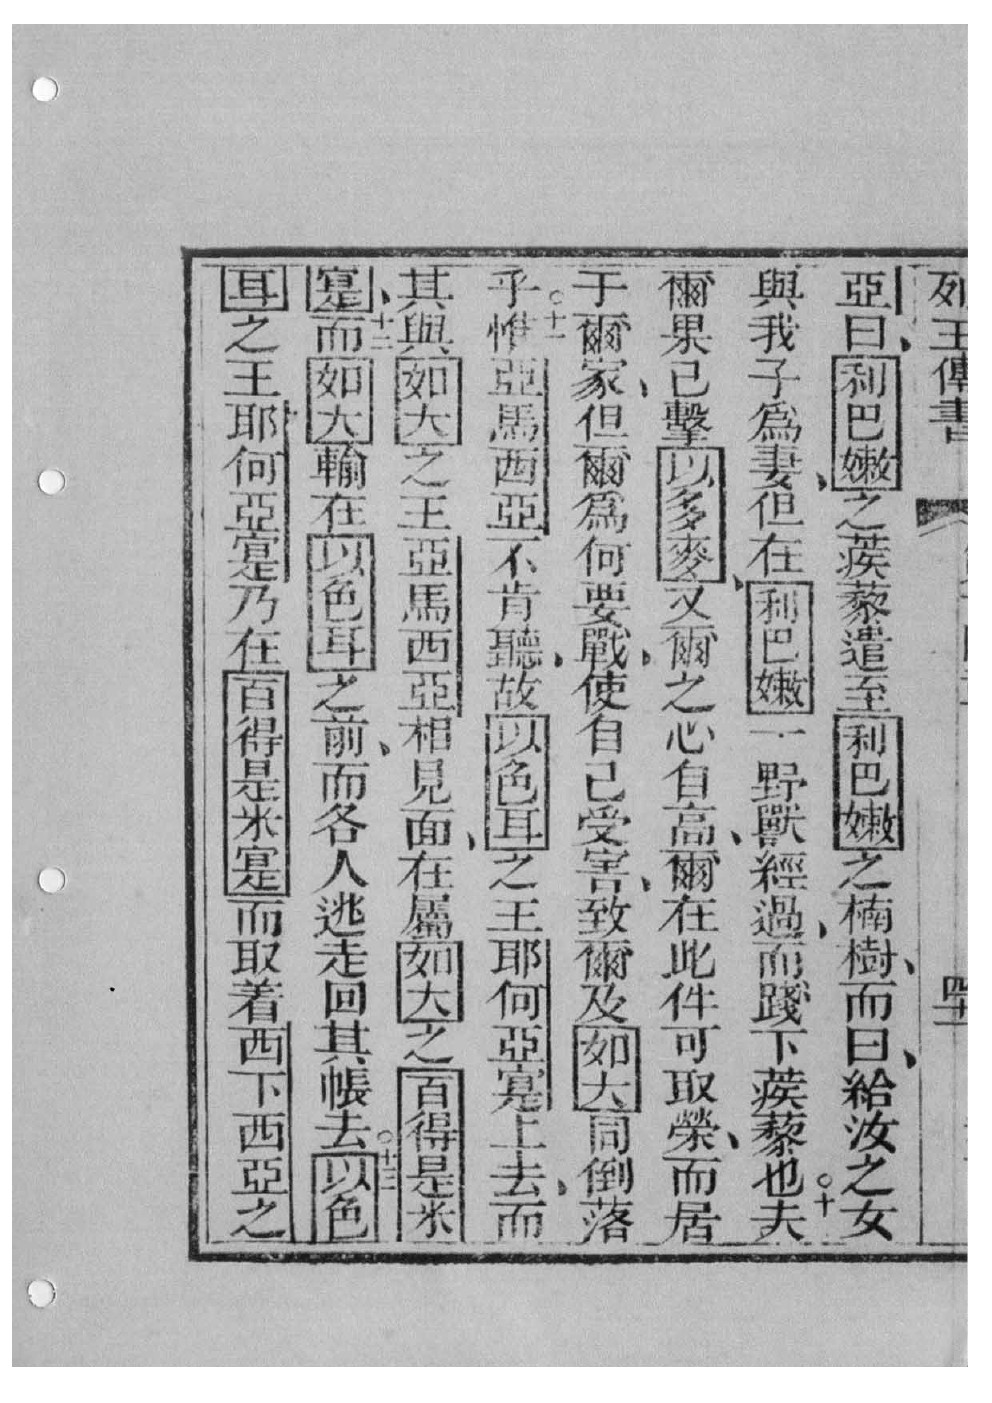 列王傳書
亞曰利巴嫩之蒺藜遣至利巴嫩之楠樹而曰給汝之女
與我子爲妻但在利巴嫩一野獸經過而踐下蒺藜也○十夫
爾果已擊以多麥又爾之心自高爾在此件可取榮而居
于爾家但爾爲何要戰使自己受害致爾及如大同倒落
乎○十一惟亞馬西亞不肯聽故以色耳之王耶何亞寔上去而
其與如大之王亞馬西亞相見面在屬如大之百得是米
寔十二而如大輸在以色耳之前而各人逃走回其帳去○十三以色
耳之王耶何亞寔乃在百得是米寔而取着西下西亞之